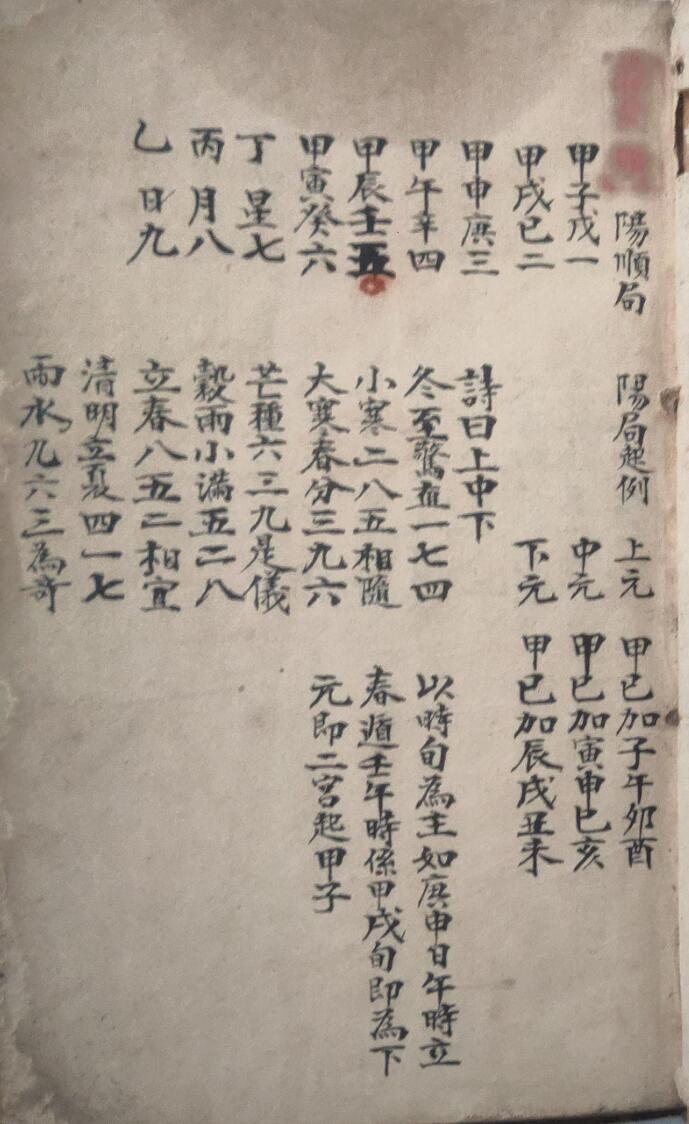 陽順局
甲子戊一
甲戌己二
甲申庚三
甲午辛四
甲辰壬五
甲寅癸六
丁星七
丙月八
乙日九
陽局起例
上元 甲己加子午卯酉
中元 甲己加寅申巳亥
下元 甲己加辰戌丑未
詩曰上中下
冬至驚蟄一七四
小寒二八五相隨
大寒春分三九六
芒種六三九是儀
穀雨小滿五二八
立春八五二相宜
清明立夏四一七
雨水九六三為奇
以時旬為主如庚申日午時立
春遁壬午時係甲戌旬即為下
元即二宮起甲子